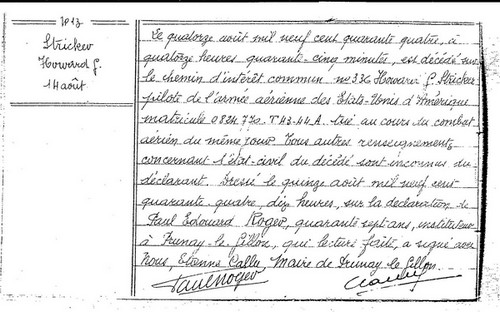 N° 13
Stricker
Howard G.
14 août
Le quatorze août mil neuf cent quarante quatre, à
quatorze heures quarante-cinq minutes, est décédé sur
le chemin d'intérêt commun n° 336 Howard G. Stricker
pilote de l'armée aérienne des Etats-Unis d'Amérique
matricule T43-44 A. tué au cours du combat
aérien du même jour. Tous autres renseignements
concernant l'état-civil du décédé sont inconnus du
déclarant. Dressé le quinze août mil neuf cent
quarante quatre, dix heures, sur la déclaration de
Paul Edouard Roger, quarante sept ans, instituteur
à Prunay-le-Gillon, qui lecture faite, a signé avec
Nous, Etienne Maire de Prunay-le-Gillon.
Paul Roger